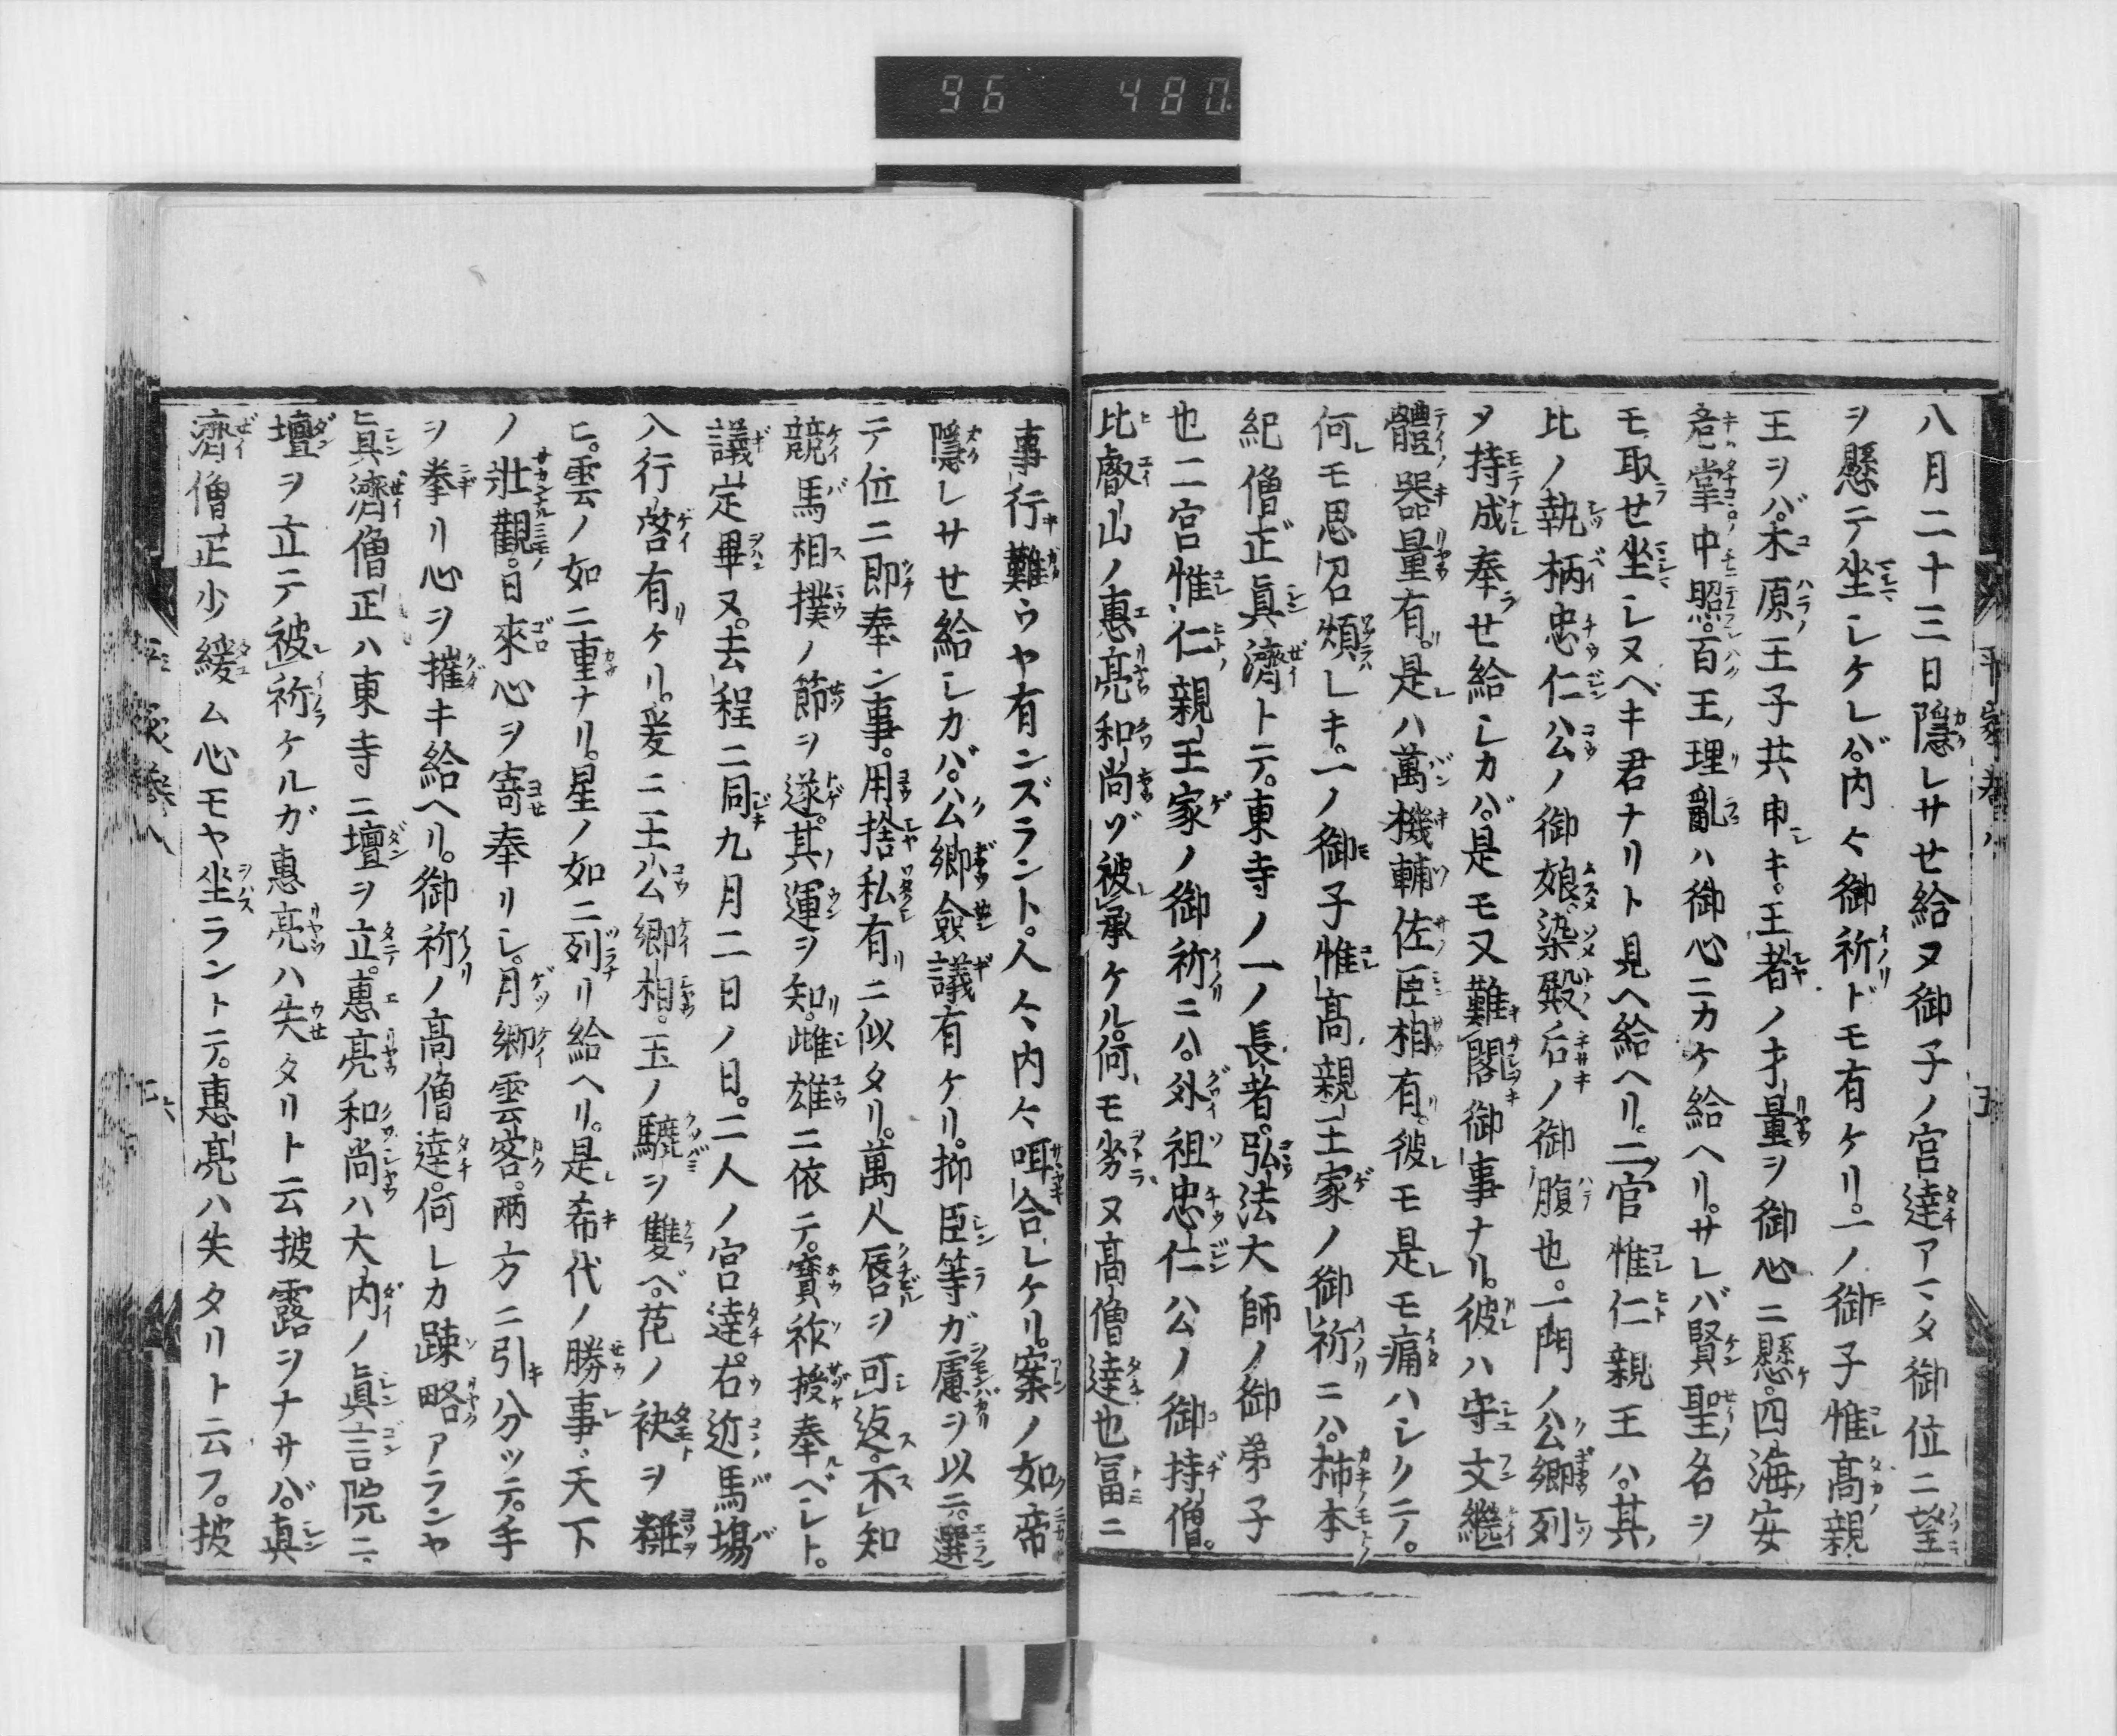 96 480
八月二十三日隠レサせ給ヌ御子ノ宮達アマタ御位ニ望
ヲ懸テ坐シケレバ。内々御祈ドモ有ケリ。一ノ御子惟髙親
王ヲバ。木原王子共申キ。王者ノ才量ヲ御心ニ懸。四海安
危掌中照。百王理亂ハ御心ニカケ給ヘリ。サレバ賢聖名ヲ
モ取せ坐シヌベキ君ナリト見ヘ給ヘリ。二宮惟仁親王ハ。其
比ノ執柄忠仁公ノ御娘。染殿后ノ御腹也。一門ノ公卿列
ヲ持成奉せ給シカバ。是モ又難閣御事ナリ。彼ハ守文継
體器量有。是ハ萬機輔佐臣相有。彼モ是モ痛ハシクニテ。
何モ思召煩レキ。一ノ御子惟髙親王家ノ御祈ニハ。柿本
紀僧正眞濟トテ。東寺ノ一ノ長者。弘法大師ノ御弟子
也二宮惟仁親王家ノ御祈ニハ。外祖忠仁公ノ御持僧。
比叡山ノ惠亮和尚ヅ被承ケル。何モ劣ヌ髙僧達也冨ニ
事行難ウヤ有ンズラント。人々内々咡合レケリ。案ノ如帝
隱レサせ給シカバ。公卿僉議有ケリ。抑臣等ガ慮ヲ以テ。選
テ位ニ即奉ン事。用捨私有ニ似タリ。萬人唇ヲ可返。不知
競馬相撲ノ節ヲ遂。其運ヲ知。雌雄ニ依テ。寳祚授奉ベレト。
議定畢ヌ。去程ニ同九月二日ノ日。二人ノ宮達右近馬塲
ヘ行啓有ケリ。爰ニ王公卿相。玉ノ轡ヲ雙ベ。花ノ袂ヲ粧
ヒ。雲ノ如ニ重ナリ。星ノ如ニ列リ給ヘリ。是希代ノ勝事。天下
ノ壯觀。日來心ヲ寄奉リレ。月卿雲客。兩方ニ引分ッテ。手
ヲ拳リ心ヲ摧キ給ヘリ。御祈ノ高僧達。何レカ踈略アランヤ
ヒ真濟僧正ハ東寺ニ壇ヲ立。惠亮和尚ハ大内ノ眞言院ニ
壇ヲ立テ被祈ケルガ惠亮ハ失タリト云披露ヲナサバ。真
濟僧正少緩ム心モヤ坐ラントテ。惠亮ハ失タリト云フ。披